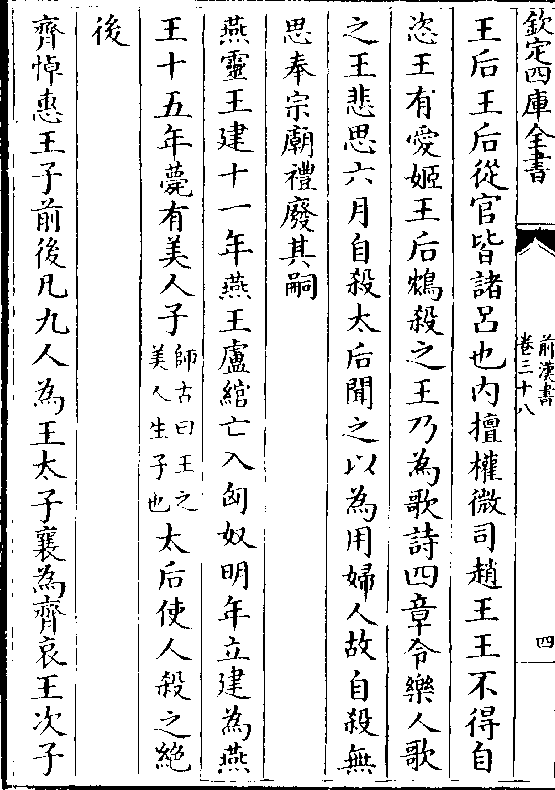 欽定四庫全書
前漢書
卷三十八
四
王后王后從官皆諸呂也内擅權微司趙王王不得自
恣王有愛姬王后鴆殺之王乃為歌詩四章令樂人歌
之王悲思六月自殺太后聞之以為用婦人故自殺無
思奉宗廟禮廢其嗣
燕靈王建十一年燕王盧綰亡入匈奴明年立建為燕
王十五年薨有美人子師古曰王之美人生子也太后使人殺之絶
後
齊悼惠王子前後凡九人為王太子襄為齊哀王次子